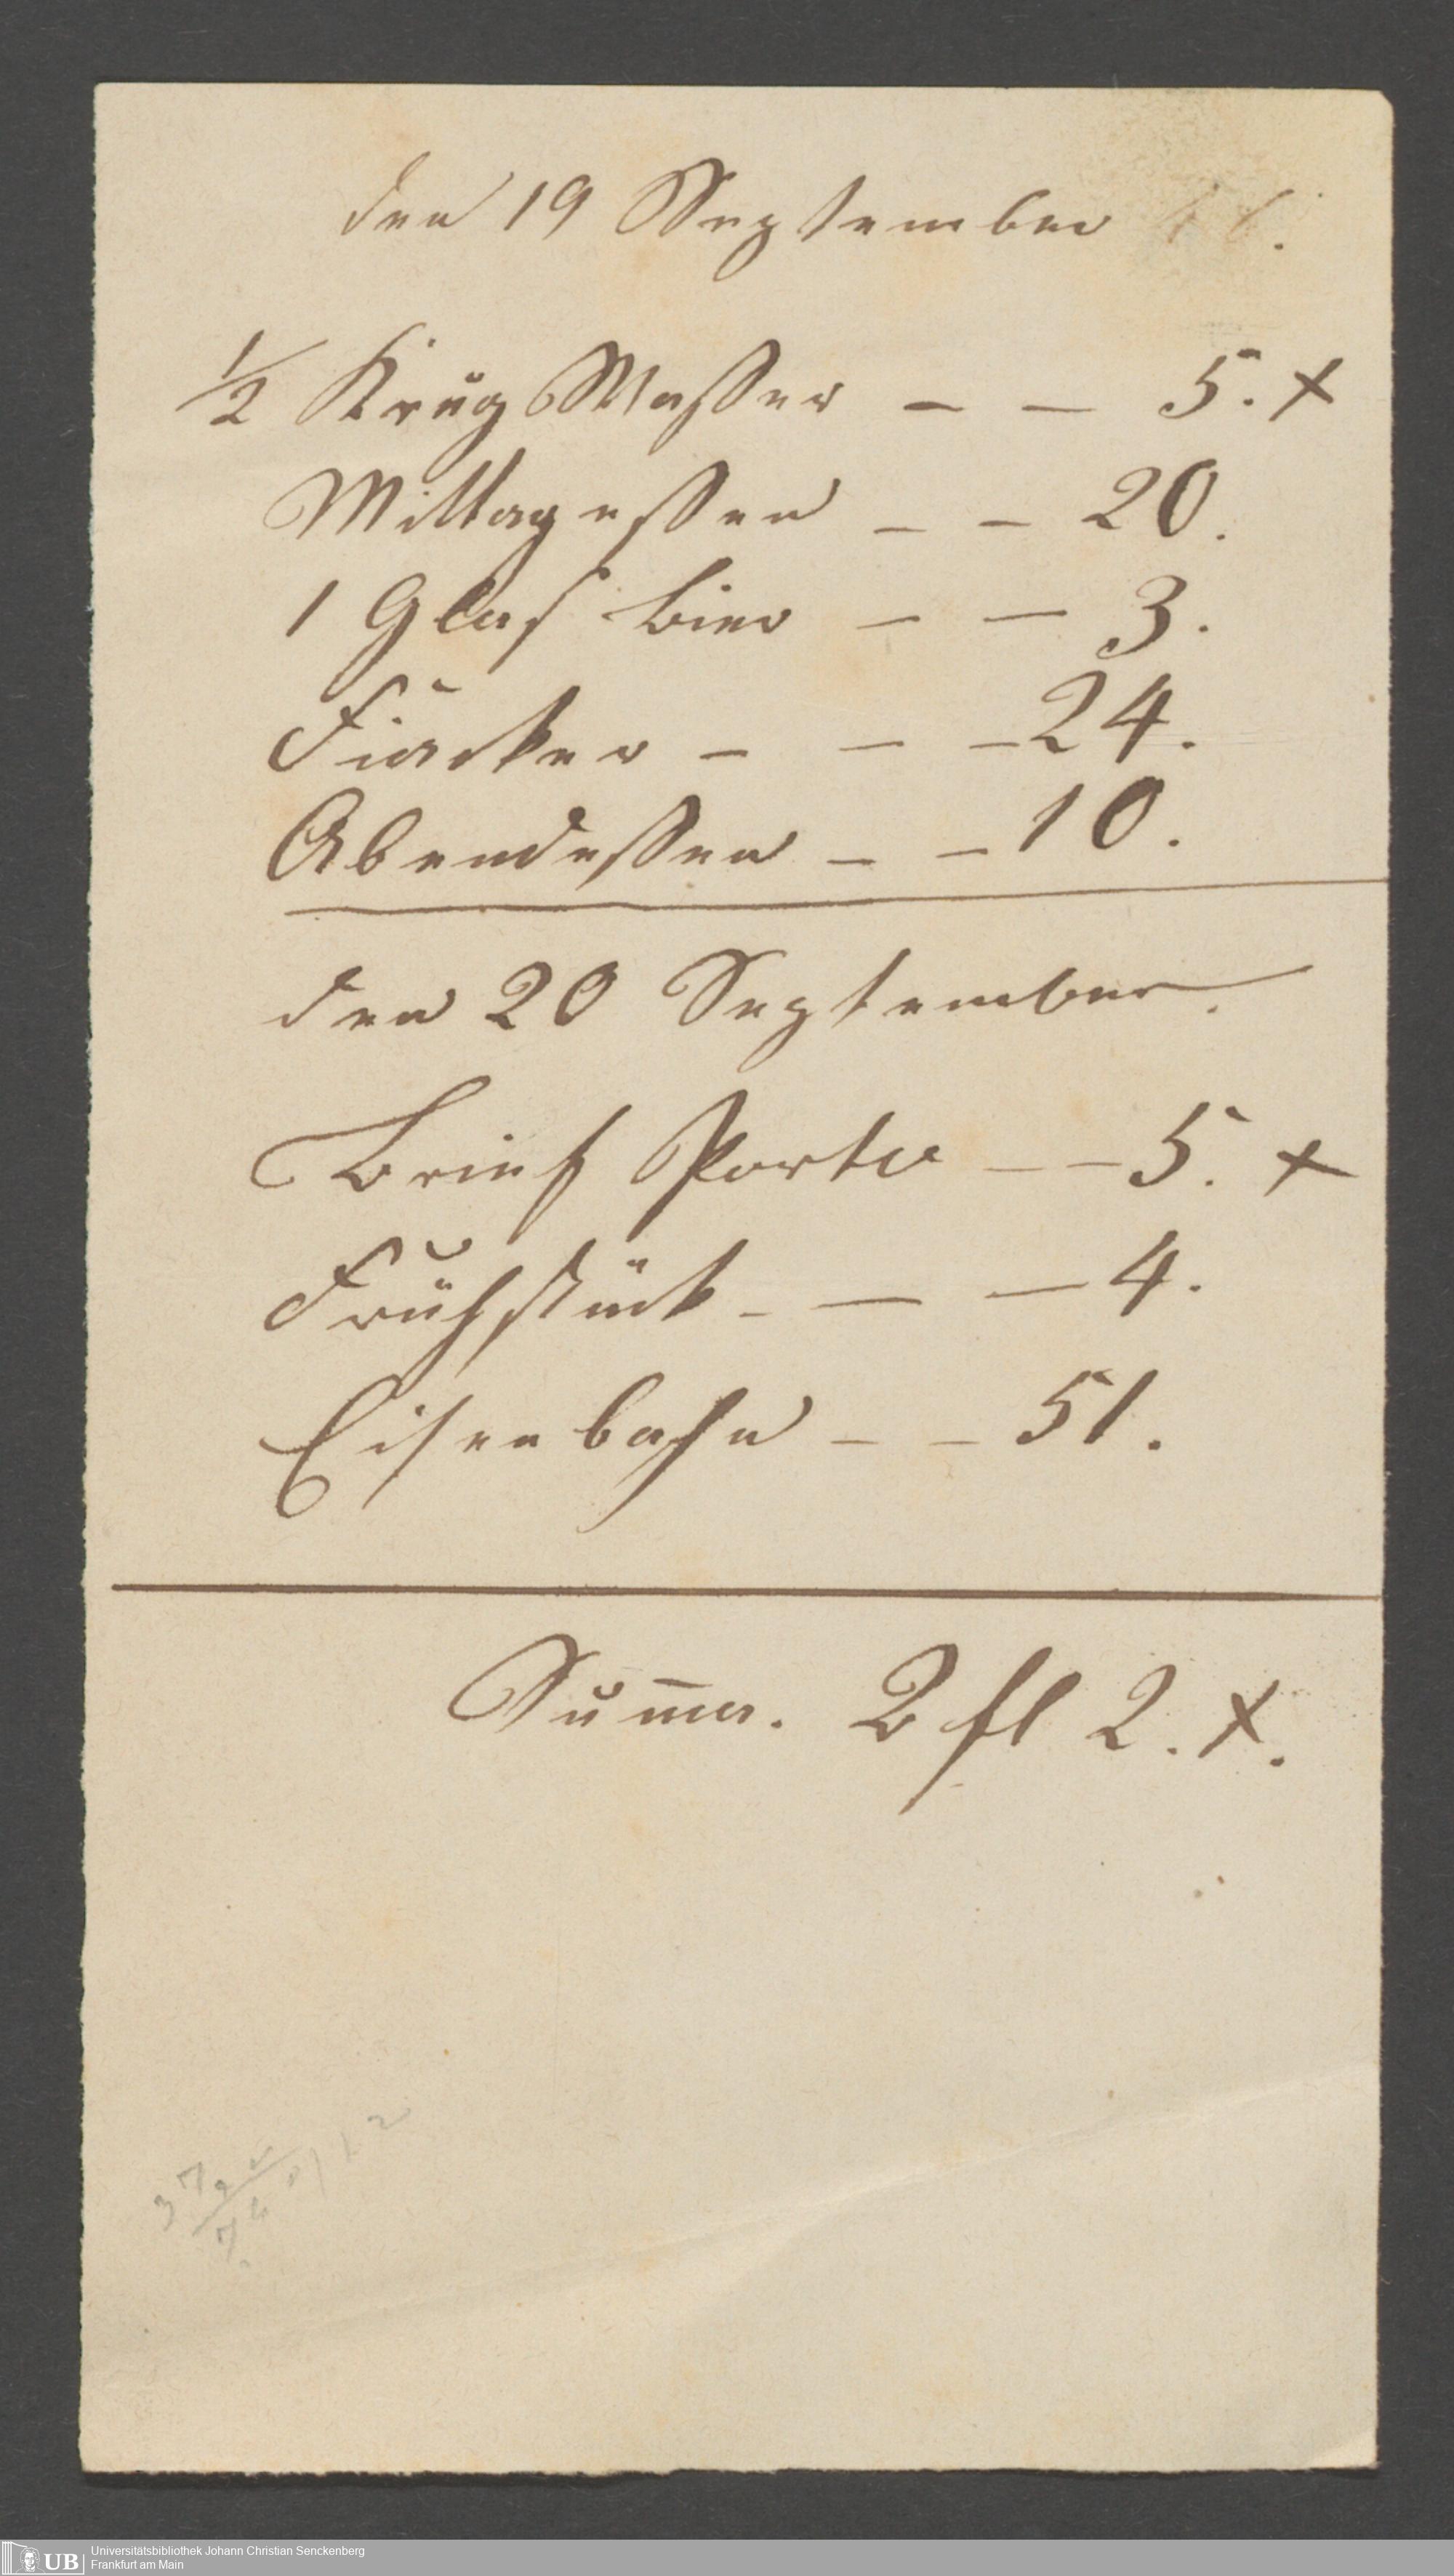 den 19 September
½ Krug Wasser — — 5. x
Mittagessen — — 20.
1 Glas Bier — — 3.
Fiacker — — — 24.
Abendessen — — 10.
den 20 September.
Brief Porto — — 5. x
Frühstück — — — 4.
Eisenbahn — — 51.
Sum̅a. 2 fl 2. x.
UB
Universitätsbibliothek Johann Christian Senckenberg
Frankfurt am Main